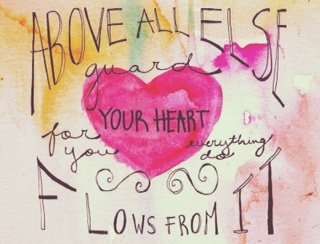 ABOVE ALL ELSE
guard
YOUR HEART
for everything
you do
FLOWS FROM IT